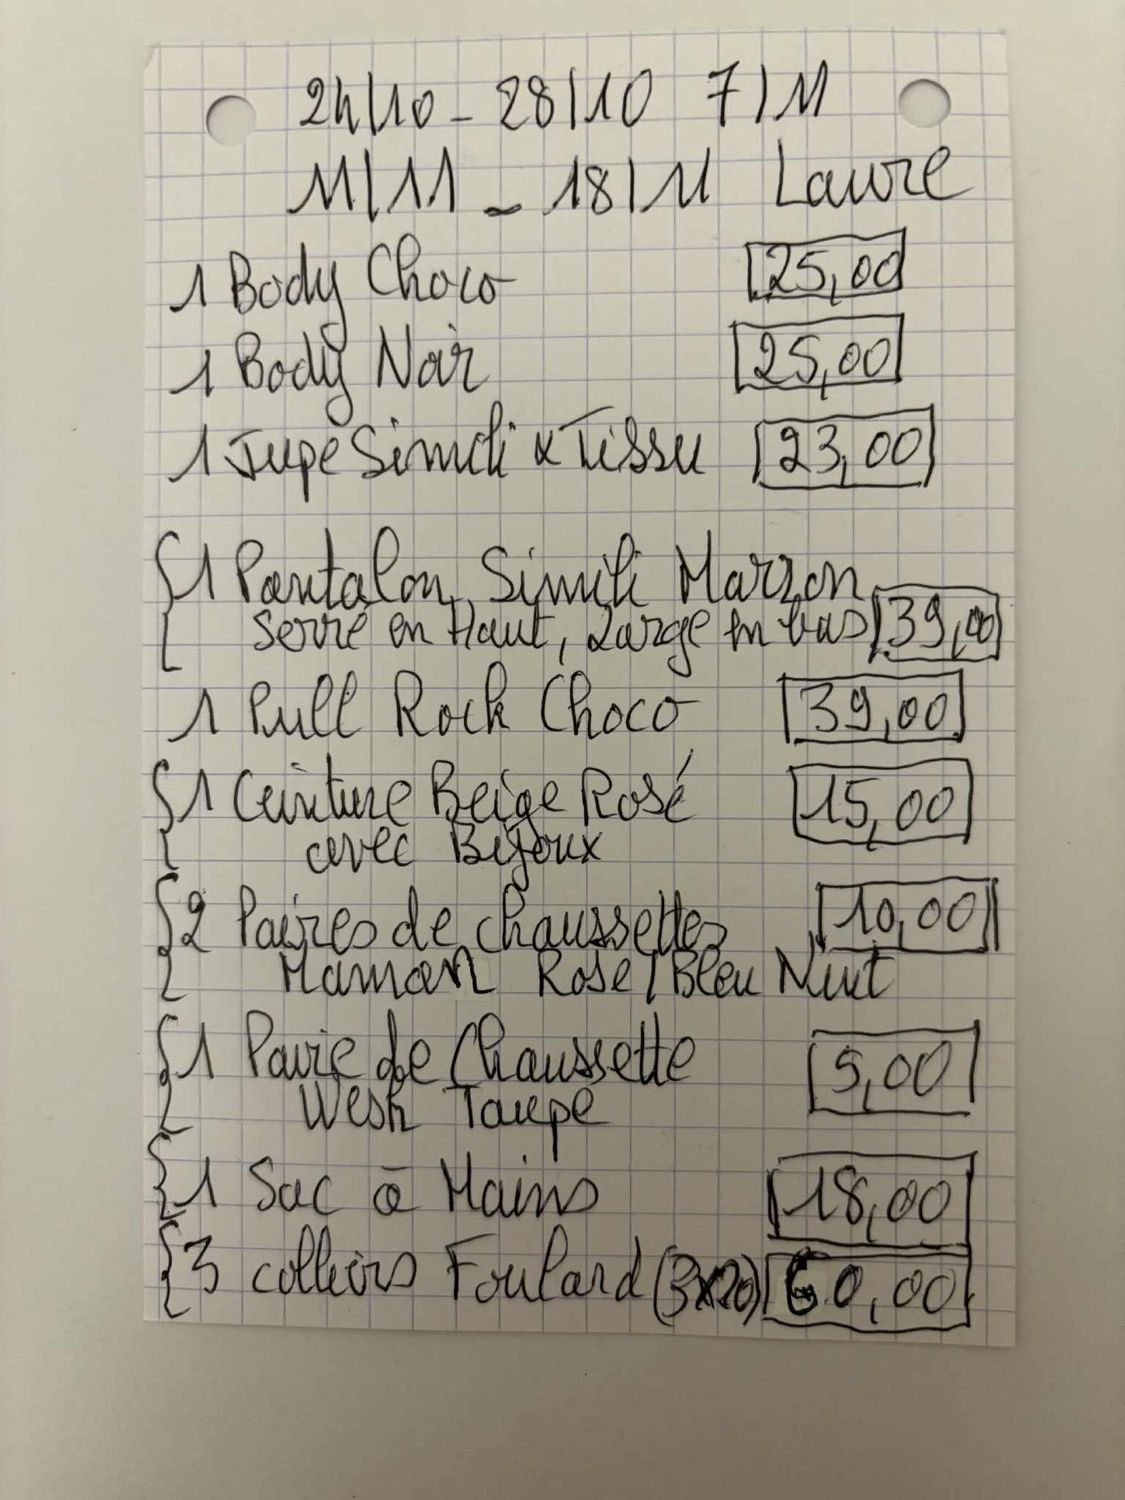 24/10 - 28/10 7/11
11/11 - 18/11 Laure
1 Body Choco 25,00
1 Body Noir 25,00
1 Jupe Simili & Tissu 23,00
1 Pantalon Simili Marron
Serré en Haut, Large en bas 39,00
1 Pull Rock Choco 39,00
1 Ceinture Beige Rosé 15,00
avec Bijoux
2 Paires de chaussettes 10,00
Maman Rose/Bleu Nuit
1 Paire de Chaussette 5,00
Wesh Taupe
1 Sac à Mains 18,00
3 colliers Foulard (3x20) 60,00